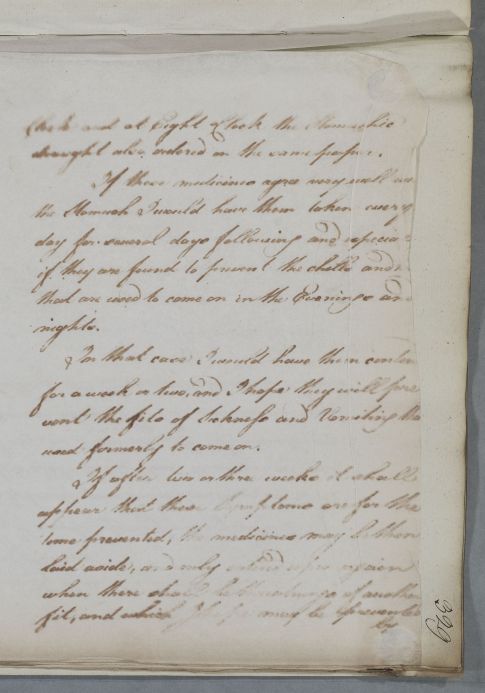 Clock and at Eight o'Clock the Stomachic
draught also ordered on the same paper.
If these medicines agree very well with
the Stomach I would have them taken every
day for several days following and especia
if they are found to prevent the chills and
that are used to come on in the Evenings and
nights.
In that case I would have them contin
for a week or two, and I hope they will pre
vent the fits of Sickness and Vomiting tha
used formerly to come on.
If after two or three weeks it shall
appear that these Symptoms are for the
time prevented, the medicines may be then
laid aside, and only again
when there shall be threatnings of another
fit, and which I hope may be prevented
by
399